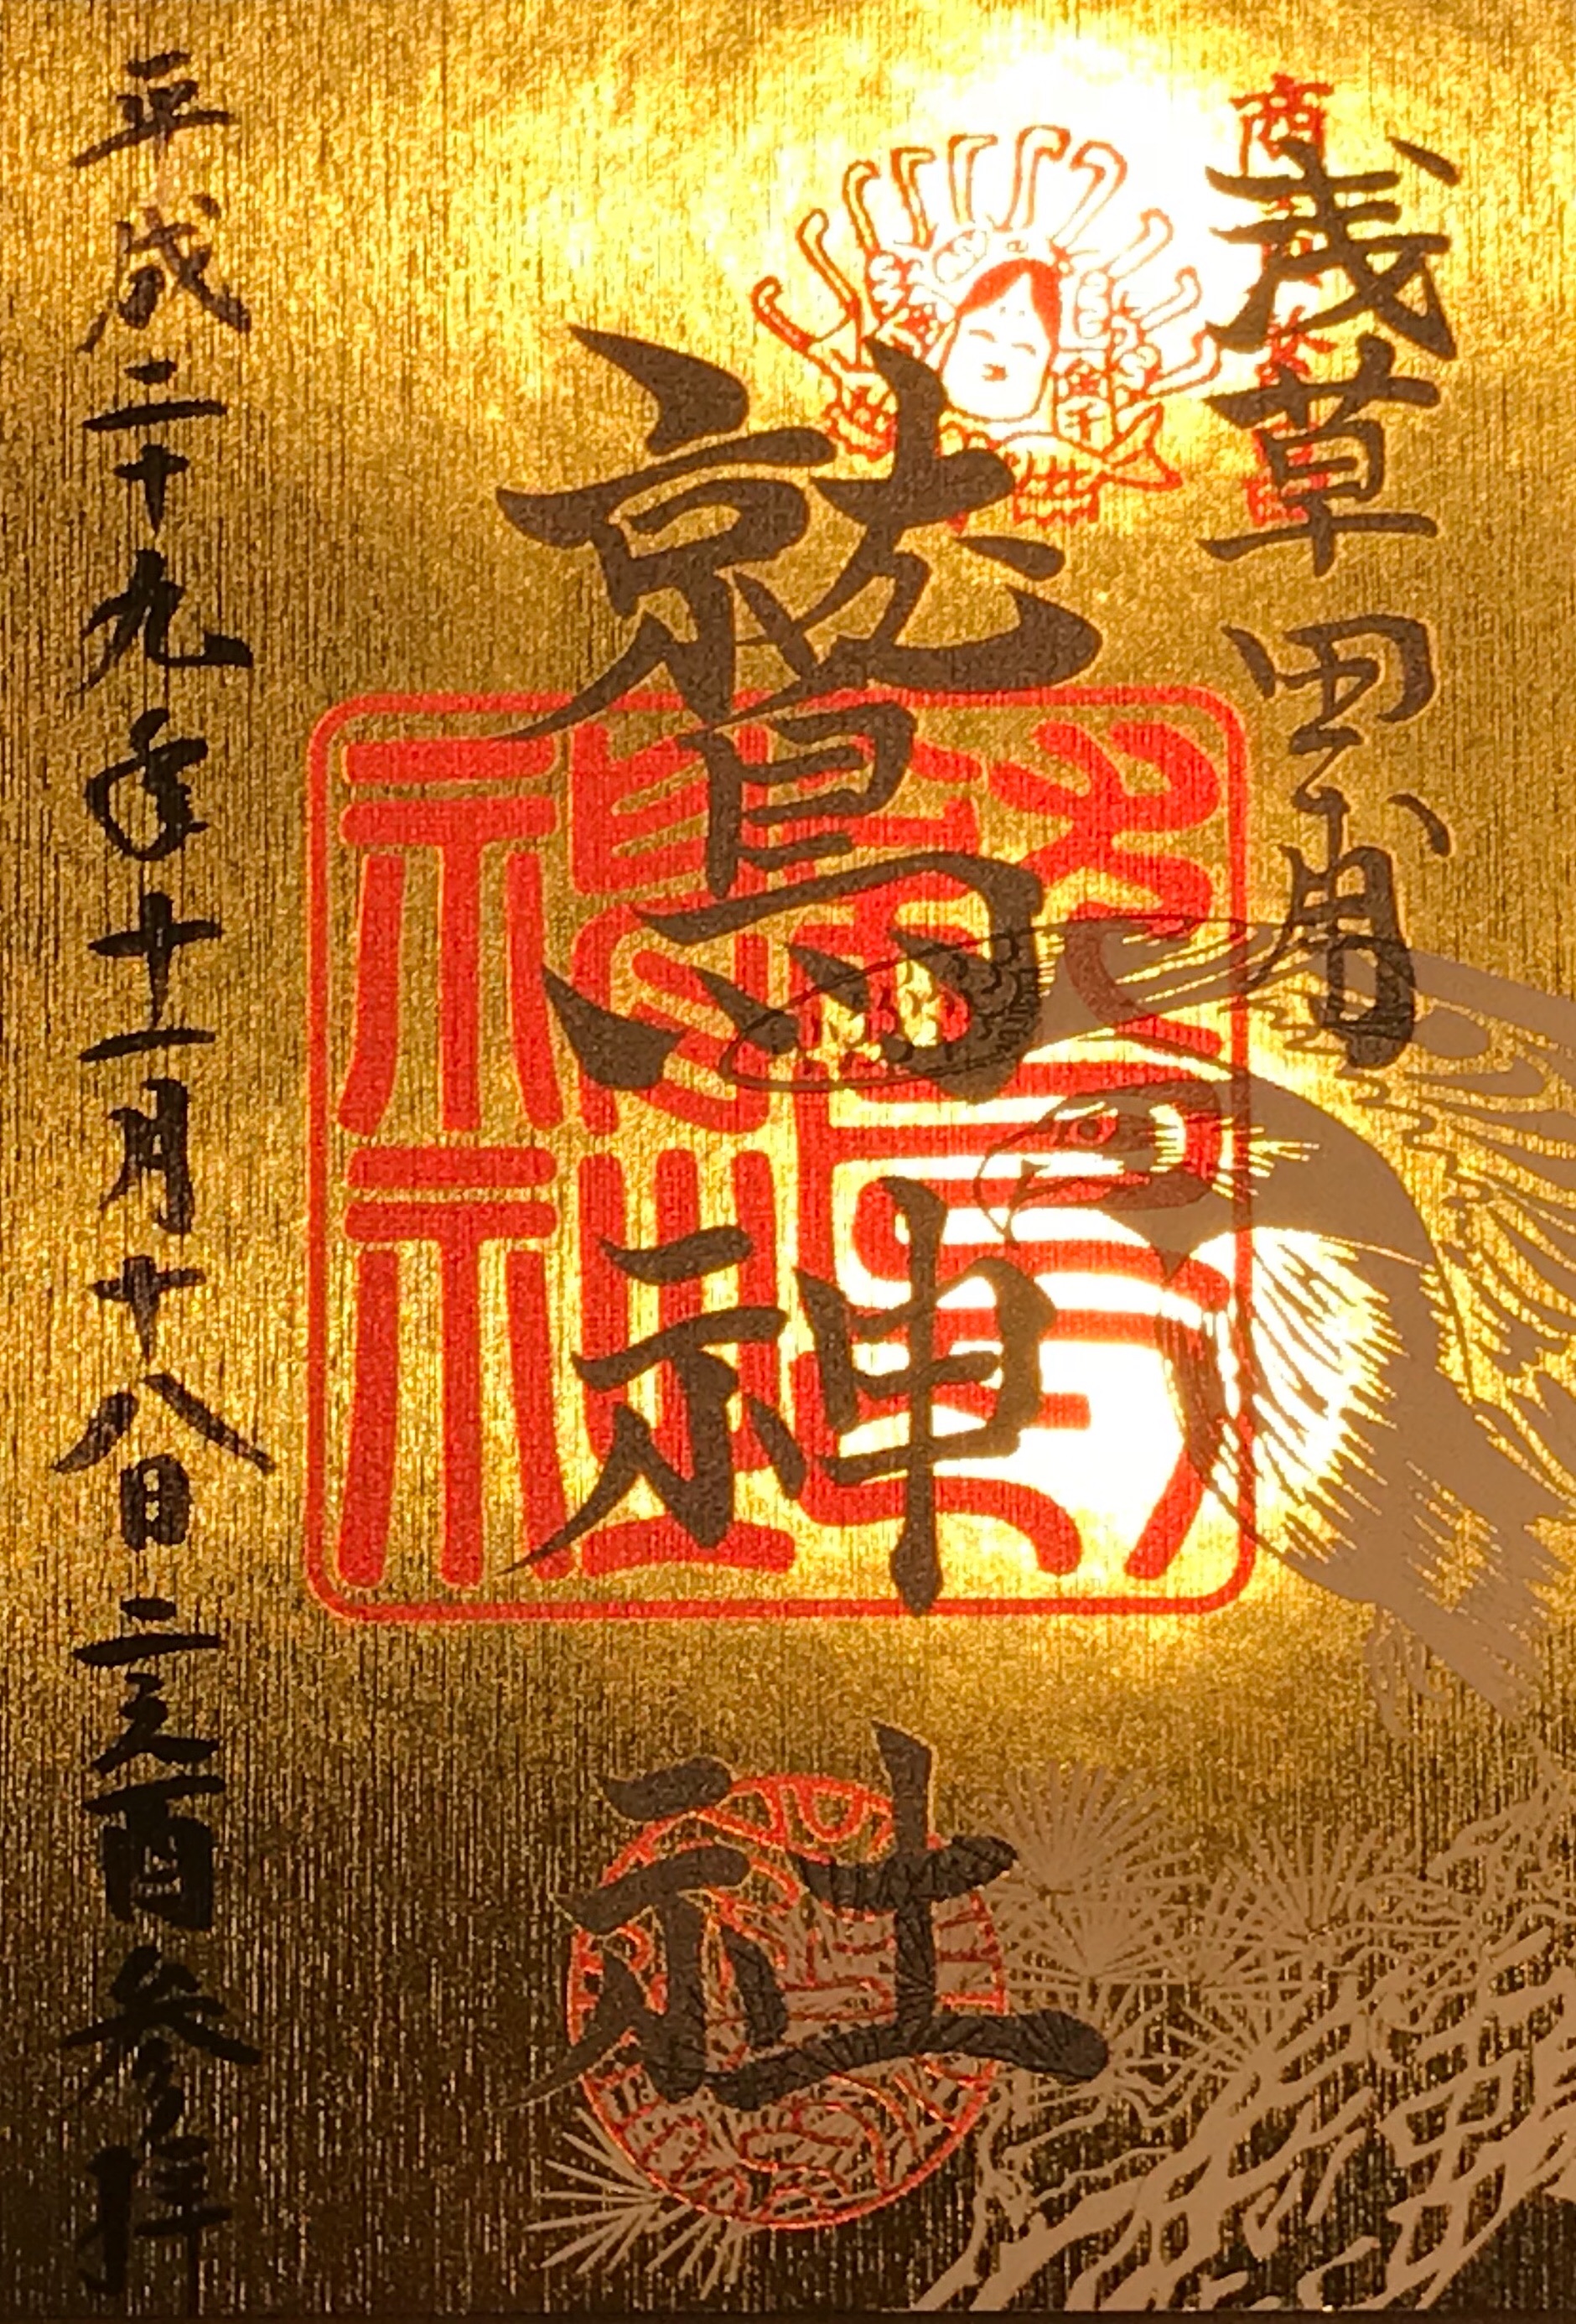 浅草田甫
鷲神社
平成二十九年十一月十八日二之酉参拝
商
鷲神社